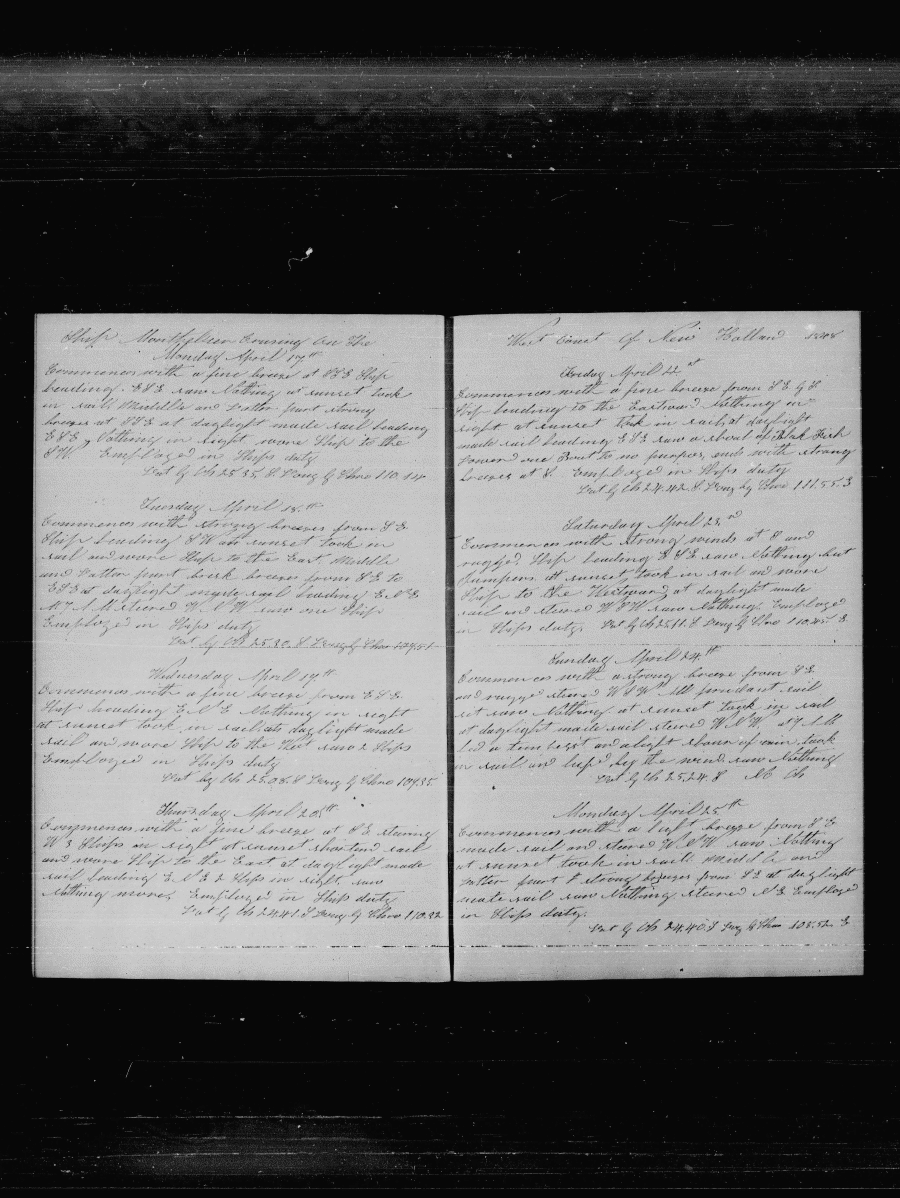 Ship Montpileer Crusing On The
Monday April 17th
Commences with a fine breeze at SSE Ship
heading ESE saw Nothing at sunset took
in sail Middle and Latter part strong
breezes at SSE at daylight made sail heading
ESE Nothing in sight wore Ship to the
SW Employed in Ships duty
Lat by Ob 25.35 S Long by Chro 110.14
Tuesday April 18th
Commences with strong breezes from SE
Ship heading SW at sunset took in
sail and wore Ship to the East Middle
and Latter part brisk breezes from SE to
ESE at daylight made sail heading E N E
At 7 A M steered W N W saw one Ship
Employed in Ships duty
Lat by Ob 25.30 S Long by Chro 109.51
Wednesday April 19th
Commences with a fine breeze from ESE
Ship heading E N E Nothing in sight
at sunset took in sail at daylight made
sail and wore Ship to the West saw 2 Ships
Employed in Ships duty
Lat by Ob 25.08 S Long by Chro 109.35
Thursday April 20th
Commences with a fine breeze at SE steering
W 3 Ships in sight at sunset shortend sail
and wore Ship to the East at daylight made
sail heading E N E 2 Ships in sight saw
Nothing more Employed in Ships duty
Lat by Ob 24.41 S Long by Chro 110.32
West Coast Of New Holland
Friday April 22
Commences with a fine breeze from S E by S
Ship heading to the Eastward Nothing in
sight at sunset took in sail at daylight
made sail heading ESE saw a shoal of Black Fish
Lowered one Boat to no purpose ends with strong
breezes at S Employed in Ships duty
Lat by Ob 24.42 S Long by Chro 111.55 E
Saturday April 23
Commences with strong winds at S and
rugged Ship heading ESE saw Nothing but
Jumpers at sunset took in sail and wore
Ship to the Westward at daylight made
sail and steered WSW saw Nothing Employed
in Ships duty Lat by Ob 25.11 S Long by Chro 110.45 E
Sunday April 24th
Commences with a strong breeze from SE
and rugged steered W S W All prudent sail
set saw Nothing at sunset took in sail
at daylight made sail steered W N W at 7 A M
and a light shower of rain took
in sail and by the wind saw Nothing
Lat by Ob 25.24 S No Ob
Monday April 25th
Commences with a light breeze from S E
made sail and steered W N W saw Nothing
at sunset took in sail Middle and
Latter part strong breezes from SE at daylight
made sail saw Nothing steered N E Employed
in Ships duty
Lat by Ob 24.40 S Long by Chro 108.52 E